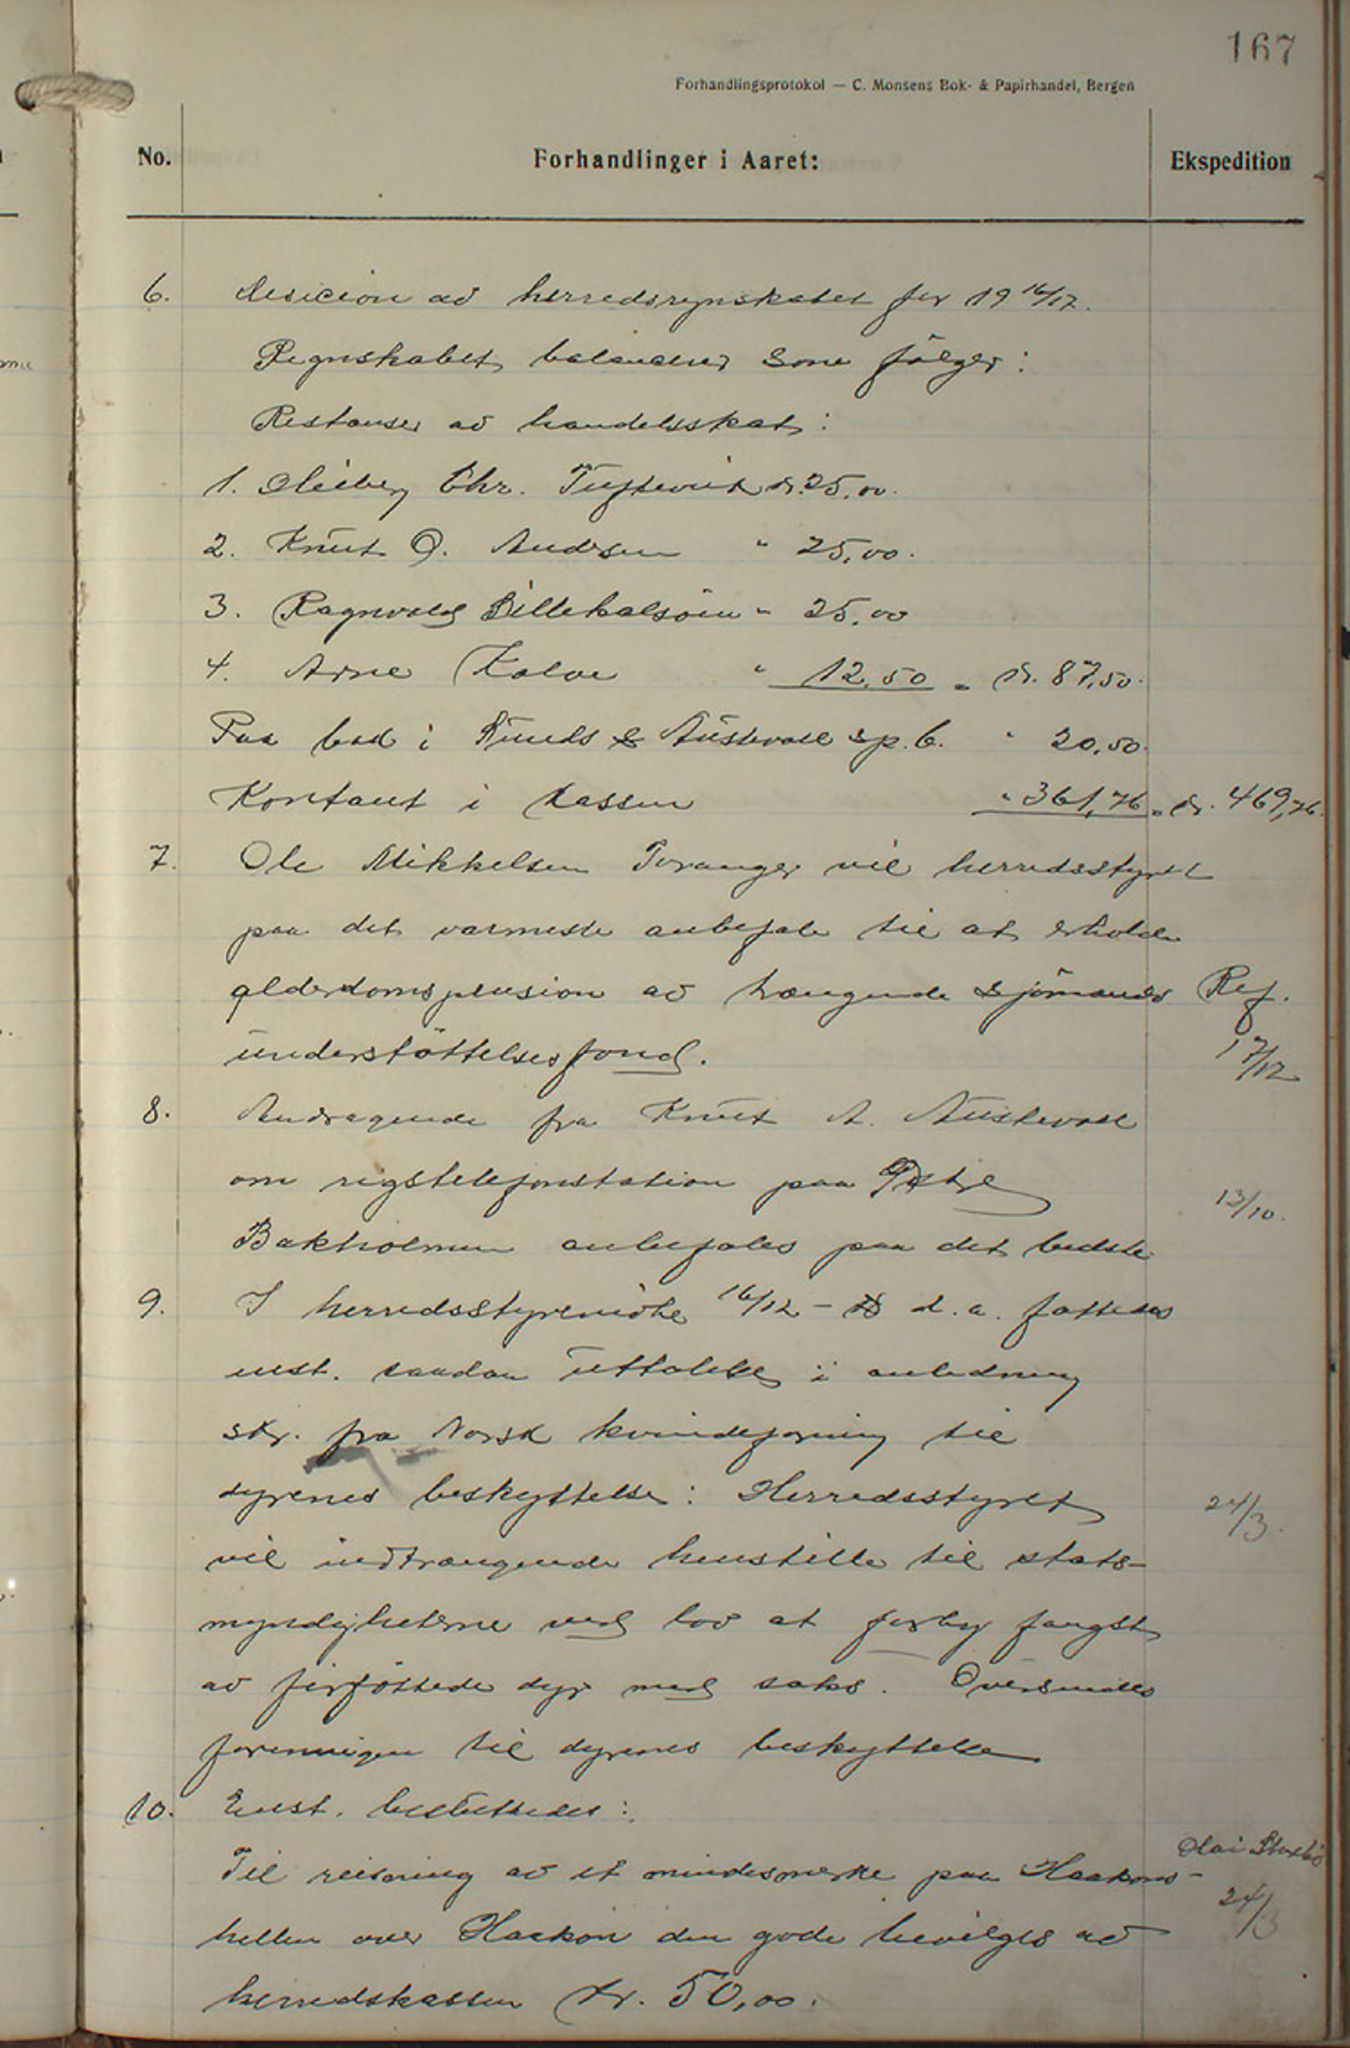 167
Forhandlingsprotokol — C. Monsens Bok- & Papirhandel, Bergen
No. Forhandlinger i Aaret: Ekspedition
6. Desicion av herredsregnskabet for 19 16/17.
Regnskabet balancerer som følger:
Restanser av handelsskat:
1. Chr. Tuftevik kr. 25,00.
2. Knut O. Andersen " 25,00.
3. Ragnvald Lillehalsøien " 25,00
4. Arne Kalve " 12,50 = kr. 87,50.
Paa bok i Sunds & Austevoll sp.b. " 20,50.
Kontant i kassen " 361,76 = kr. 469,76.
7. Ole Mikkelsen Toranger vil herredsstyret
paa det varmeste anbefale til at erholde
alderdomspension av trængende sjømænds Ref.
understøttelsesfond. 17/12
8. Andragende fra Knut A. Austevoll
om rigstelefonstation paa Østre 13/10.
Bakholmen anbefales paa det bedste
9. I herredsstyremøte 16/12 - d. a. fattedes
enst. saadan uttalelse i anledning
skr. fra Norsk kvindeforening til
dyrenes beskyttelse: Herredsstyret 24/3.
vil indtrængende henstille til stats-
myndigheterne ved lov at forby fangst
av firføttede dyr med saks. Oversendes
foreningen til dyrenes beskyttelse
10. Enst. besluttedes:
Til reisning av et mindesmerke paa Haakons- Olai Storbø
hellen over Haakon den gode bevilges av 24/3
herredskassen kr. 50,00.